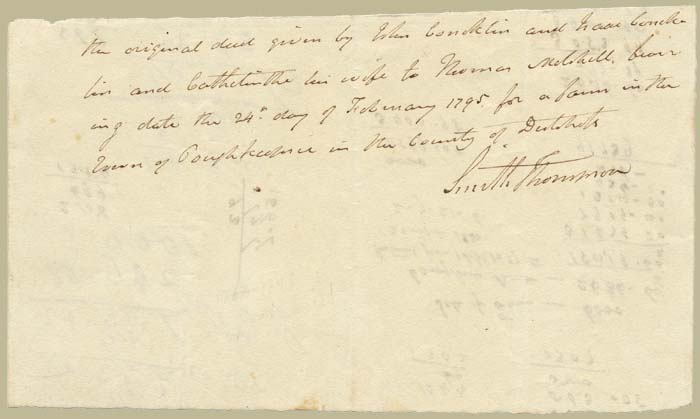 the original deed given by John Concklin and Isaac Conck-
lin and Cathelinthe his wife to Thomas Mitchell, bear-
ing date the 24th day of February 1795. for a farm in the
Town of Poughkeepsie in the County of Dutchess
Smith Thompson